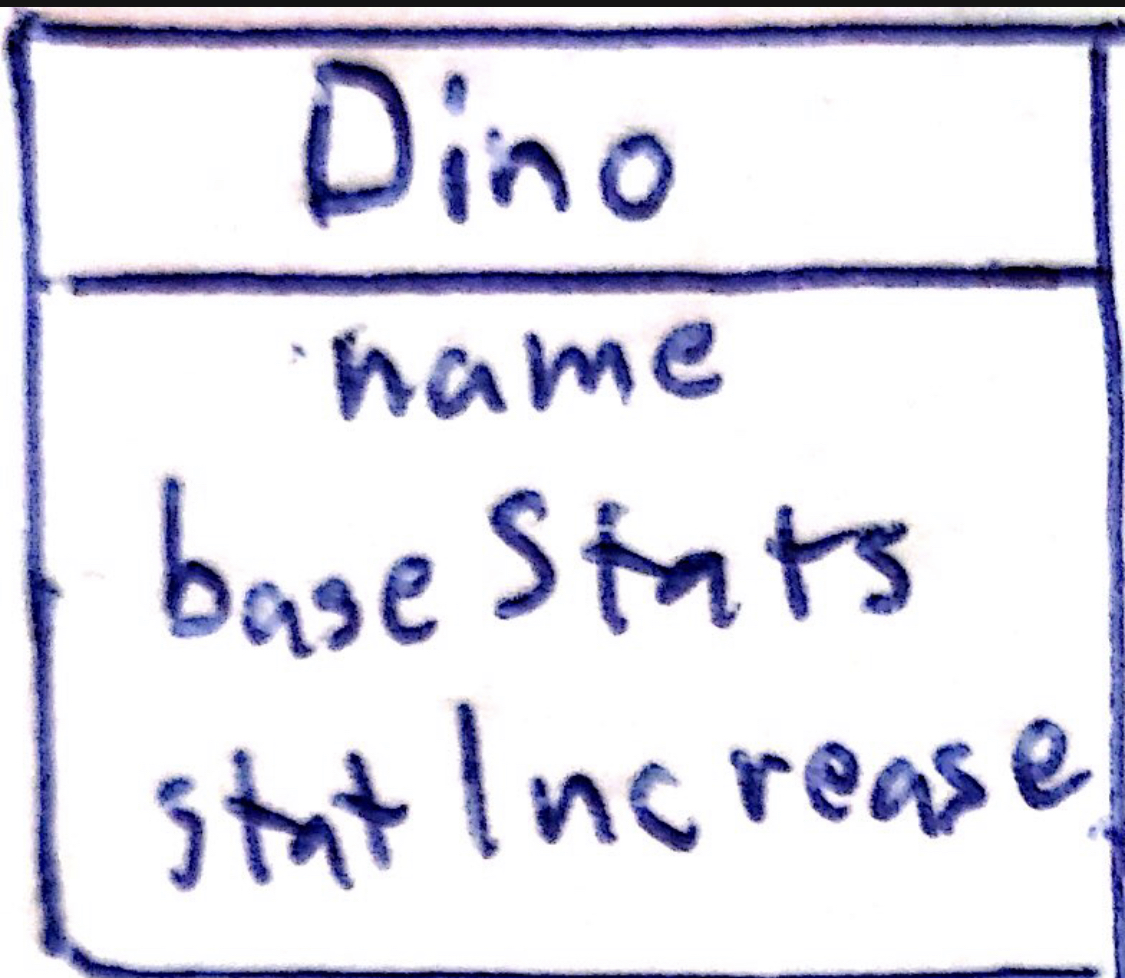 Dino
name
baseStats
statIncrease